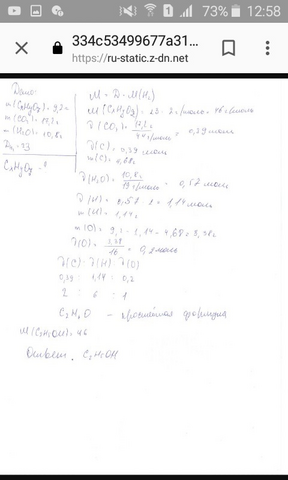 73% 12:58
334c53499677a31...
https://ru-static.z-dn.net
Дано:
m(CxHyOz)=9,2г
m(CO₂)=17,2г
m(H₂O)=10,8г
CxHyOz - ?
M = D · M(H₂)
M(CxHyOz) = 23 · 2 г/моль = 46 г/моль
ν(CO₂) = 17,2г / 44 г/моль = 0,39 моль
ν(C) = 0,39 моль
m(C)
ν(H₂O) = 10,8г / 19 г/моль = 0,57 моль
ν(H) = 0,57 · 2 = 1,14 моль
m(H) = 1,14г
m(O) = 9,2 - 1,14 - 4,68 = 3,38г
ν(O) = 3,38 / 16 = 0,2 моль
ν(C) : ν(H) : ν(O)
0,39 : 1,14 : 0,2
2 : 6 : 1
C₂H₆O - простейшая формула
M(C₂H₅OH) = 46
Ответ: C₂H₅OH